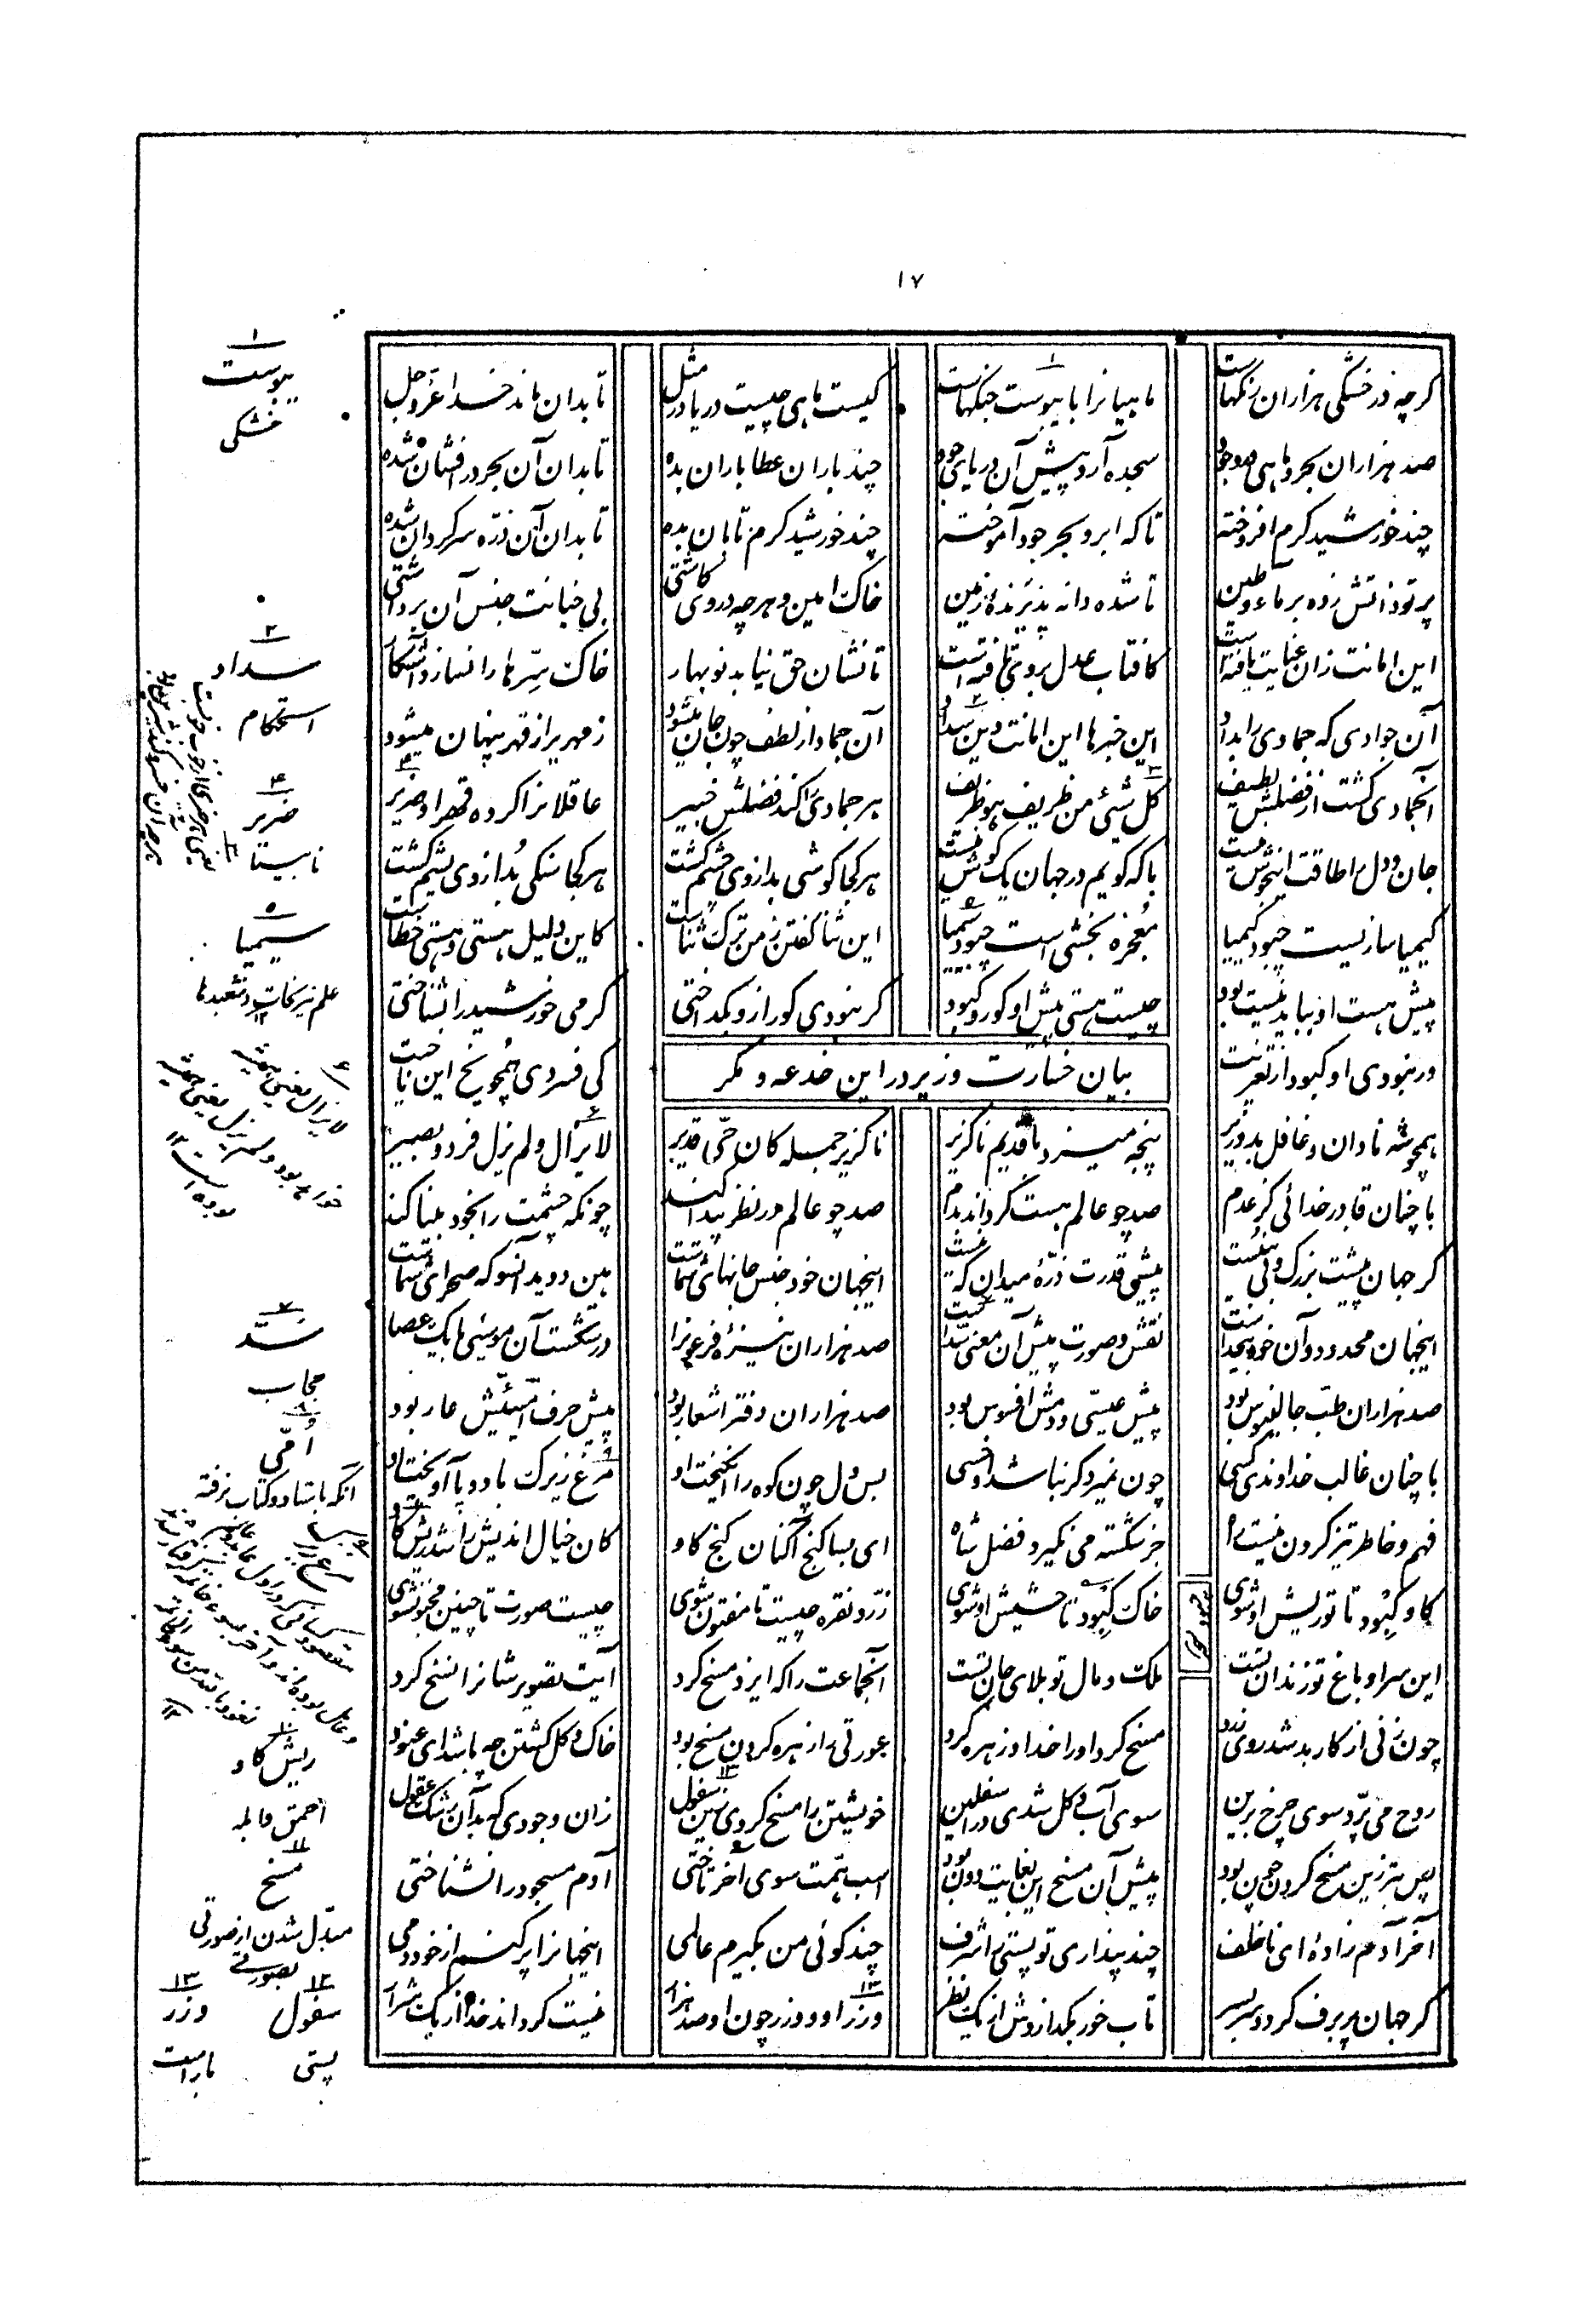 ۱۷
گرچه در خشکی هزاران رنگهاست ماهیانرا با یبوست جنگهاست
کیست ماهی چیست دریا در مثل تا بدان ماند خدا عزوجل
صد هزاران بحر و ماهی در وجود سجده آرد پیش آن دریای جود
چند باران عطا باران بده تا بدان آن بحر در افشان شده
چند خورشید کرم افروخته تا که ابر و بحر جود آموخته
چند خورشید کرم تابان بده تا بدان آن ذره سرگردان شده
پرتو ذاتش زده بر ماء و طین تا شده دانه پذیرنده زمین
خاک امین و هرچه در وی کاشتی بی خیانت جنس آن برداشتی
این امانت زان عنایت یافته است کافتاب عدل بروی تافته است
تا نشان حق نیاید نوبهار خاک سرها را نسازد آشکار
آن جوادی که جمادی را بداد این خبرها این امانت وین سداد
آن جماد از لطف چون جان میشود زمهریر از قهر پنهان میشود
آن جمادی گشت از فضلش لطیف کل شیئ من ظریف هو ظریف
هر جمادی را کند فضلش خبیر عاقلانرا کرده قهر او ضریر
جان و دل را طاقت این جوش نیست با که گویم در جهان یک گوش نیست
هر کجا گوشی بد از وی چشم گشت هر کجا سنگی بد از وی یشم گشت
کیمیا سازیست چبود کیمیا معجزه بخشی است چبود سیمیا
این ثنا گفتن ز من ترک ثناست کاین دلیل هستی و هستی خطاست
پیش هست او بباید نیست بود چیست هستی پیش او کور و کبود
گر نبودی کور ازو بگداختی گرمی خورشید را بشناختی
ور نبودی او کبود از تعزیت کی فسردی همچو یخ این ناحیت
بیان خسارت وزیر در این خدعه و مکر
همچو شه نادان و غافل بد وزیر پنجه میزد با قدیم ناگزیر
ناگزیر جمله کان حی قدیر لایزال ولم یزل فرد و بصیر
با چنان قادر خدائی کز عدم صد چو عالم هست گرداند بدم
صد چو عالم در نظر پیدا کند چونکه چشمت را بخود بینا کند
گر جهان پیشت بزرگ و بی بنیست پیش قدرت ذره میدان که نیست
اینجهان خود حبس جانهای شماست هین دوید آنسو که صحرای شماست
اینجهان محدود و آن خود بیحد است نقش و صورت پیش آن معنی سد است
صد هزاران نیزه فرعونرا در شکست آن موسئی با یک عصا
صد هزاران طب جالینوس بود پیش عیسی و دمش افسوس بود
صد هزاران دفتر اشعار بود پیش حرف امئیش عار بود
با چنان غالب خداوندی کسی چون نمیرد گر نباشد او خسی
بس دل چون کوه را انگیخت او مرغ زیرک با دو پا آویخت او
فهم و خاطر تیز کردن نیست راه جز شکسته می نگیرد فضل شاه
ای بسا گنج آکنان گنج کاو کان خیال اندیش را شد ریش گاو
گاو کبود تا تو ریش او شوی خاک کبود تا حشیش او شوی
زر و نقره چیست تا مفتون شوی چیست صورت تا چنین مجنون شوی
این سرا و باغ تو زندان تست ملک و مال تو بلای جان تست
آنجماعت را که ایزد مسخ کرد آیت تصویرشانرا نسخ کرد
چون زنی از کار بد شد روی زرد مسخ کرد او را خدا و زهره کرد
عورتی را زهره کردن مسخ بود خاک و گل گشتن چه باشد ای عنود
روح می برد سوی چرخ برین سوی آب و گل شدی در اسفلین
خویشتن را مسخ کردی زین سفول زان وجودی که بد آن رشک عقول
پس بتر زین مسخ کردن چون بود پیش آن مسخ این بغایت دون بود
اسب همت سوی آخر تاختی آدم مسجود را نشناختی
آخر آدم زاده ای ناخلف چند پنداری تو پستی را شرف
چند گوئی من بگیرم عالمی اینجهانرا پر کنم از خود دمی
گر جهان پر برف گردد سر بسر تاب خور بگدازدش از یک نظر
وزر او و وزر چون او صد هزار نیست گرداند خدا از یک شرار
۱
یبوست
خشکی
۲
سداد
استحکام
۴
ضریر
نابینا
۵
سیمیا
علم نیرنجات و شعبدها
۶
لایزال یعنی همیشه
۷
سد
حجاب
۸
امی
آنکه باستاد و کتاب نرفته
۱۰
ریش گاو
احمق و ابله
۱۱
مسخ
مبدل شدن از صورتی
بصورتی
۱۲
سفول
پستی
۱۳
وزر
بار است